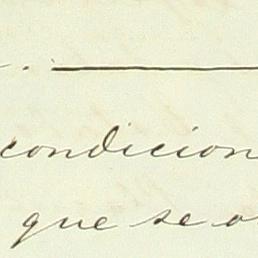 condicion
que se o